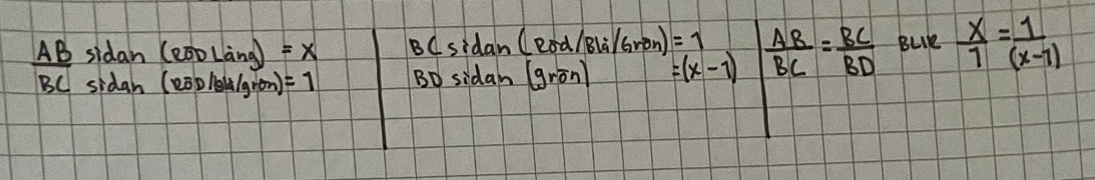 AB sidan (RöD Lång) = x
BC sidan (RöD/Blå/grön) = 1
BC sidan (Röd/Blå/Grön) = 1
BD sidan (grön) = (x-1)
AB/BC = BC/BD BLIR x/1 = 1/(x-1)